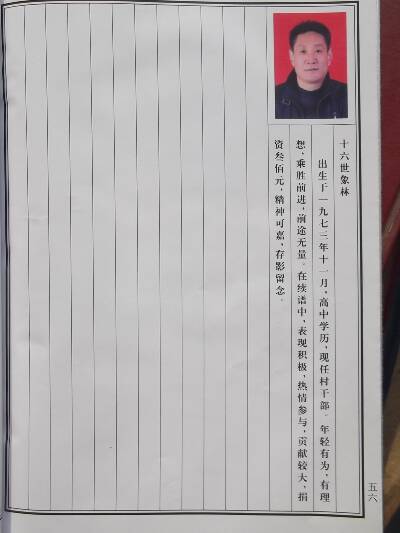 十六世象林
出生于一九七三年十一月，高中学历，现任村干部。年轻有为，有理
想，乘胜前进，前途无量。在续谱中，表现积极，热情参与，贡献较大，捐
资叁佰元，精神可嘉，存影留念。
五六